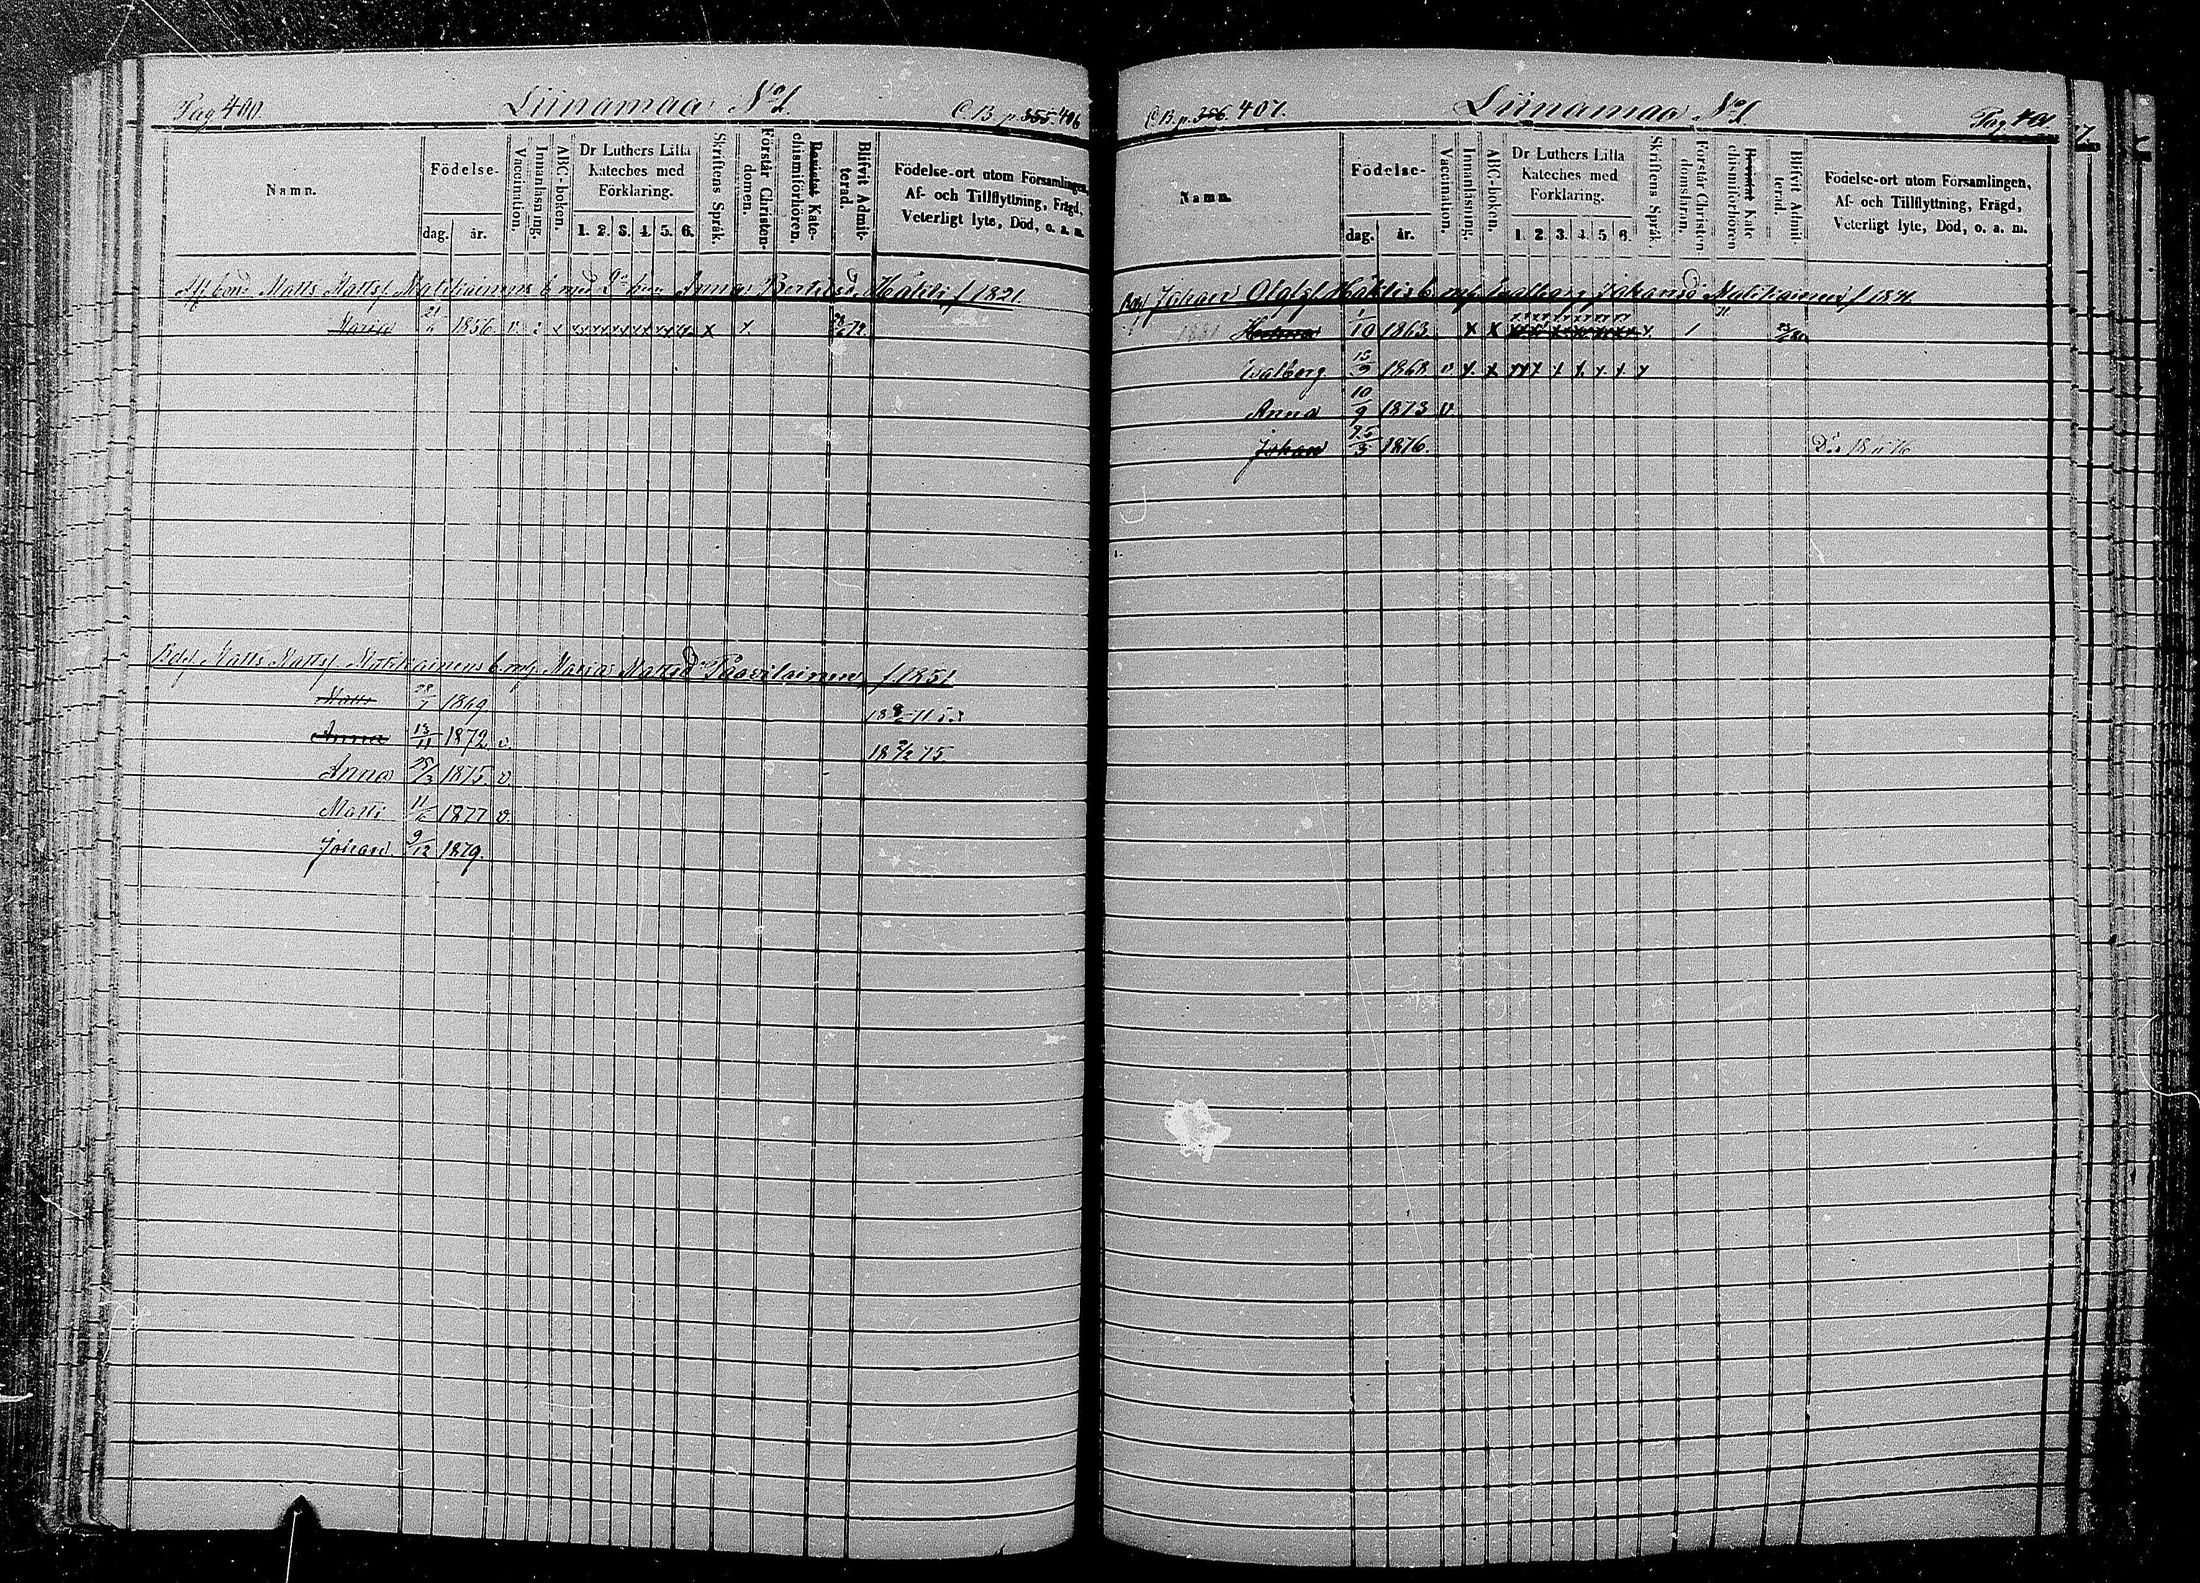 Pag 400. Liinamaa N:o 1. C.B. p. 355. 406
Namn.
Födelse-
dag. år.
Vaccination.
Innanläsning.
ABC-boken.
Dr Luthers Lilla
Kateches med
Förklaring.
1. 2. 3. 4. 5. 6.
Skriftens Språk.
Förstår Christen-
domen.
Bevistat Kate-
chismiförhören.
Blifvit Admit-
terad.
Födelse-ort utom Församlingen,
Af- och Tillflyttning, Frägd,
Veterligt lyte, Död, o. a. m.
Matts Mattsf Matikainens b. med Anna Bertilsd f 1821
Maria 1856 v x x x
Matts Mattsf Matikainens b. mf. Maria Mattsd Paavilainen f. 1851
Matts 1869
Anna 13/11 1872 v.
18 75
Anna 1875 v.
Matti 1877 v.
Johan. 9/12 1879.
C.B. p. 356. 407. Liinamaa N:o 1. Pag. 401
Namn.
Födelse-
dag. år.
Vaccination.
Innanläsning.
ABC-boken.
Dr Luthers Lilla
Kateches med
Förklaring.
1. 2. 3. 4. 5. 6.
Skriftens Språk.
Förstår Christen-
domsläran.
Bevistat Kate
chismiförhören
Blifvit Admit-
terad.
Födelse-ort utom Församlingen,
Af- och Tillflyttning, Frägd,
Veterligt lyte, Död, o. a. m.
Johan Olofsf b. mf. Valborg Johansd Matikainen f
1/10 1863 x x
Valborg 13/9 1868 v. x x x x x x x
Anna 10/9 1873 v.
Johan 25/3 1876.